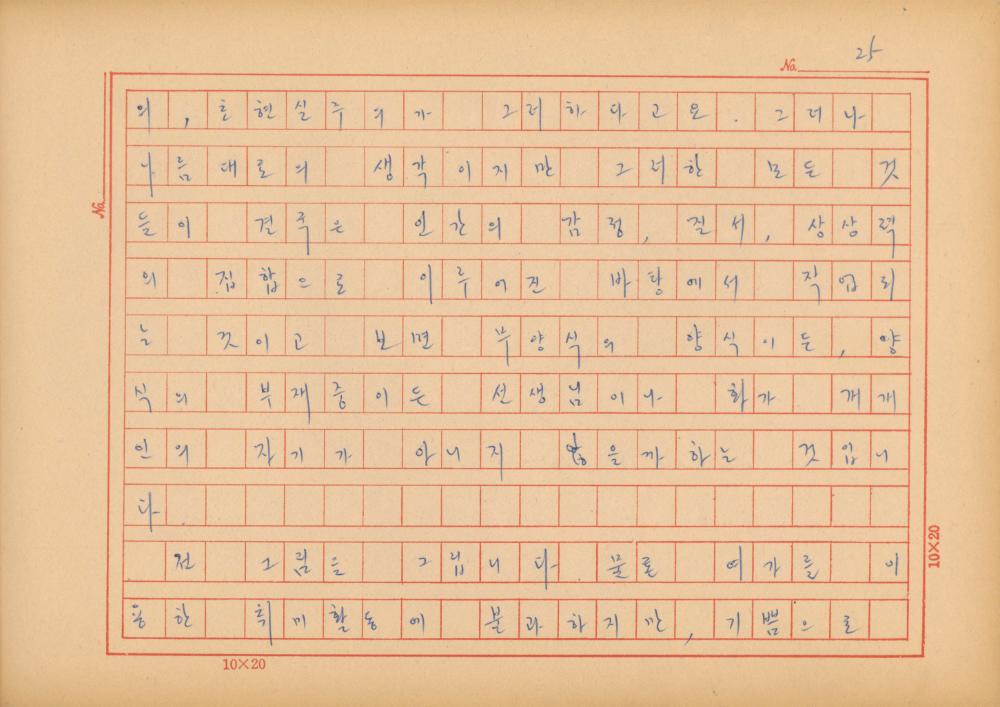 No. 25
의, 초현실주의가 그러하다고요. 그러나
나름대로의 생각이지만 그러한 모든 것
들이 결국은 인간의 감정, 질서, 상상력
의 집합으로 이루어진 바탕에서 작업되
는 것이고 보면 무양식의 양식이든, 양
식의 부재중이든 선생님이나 화가 개개
인의 자기가 아니지 않을까하는 것입니
다.
전 그림을 그립니다. 물론 여가를 이
용한 취미활동에 불과하지만, 기쁨으로
No.
10×20
10×20